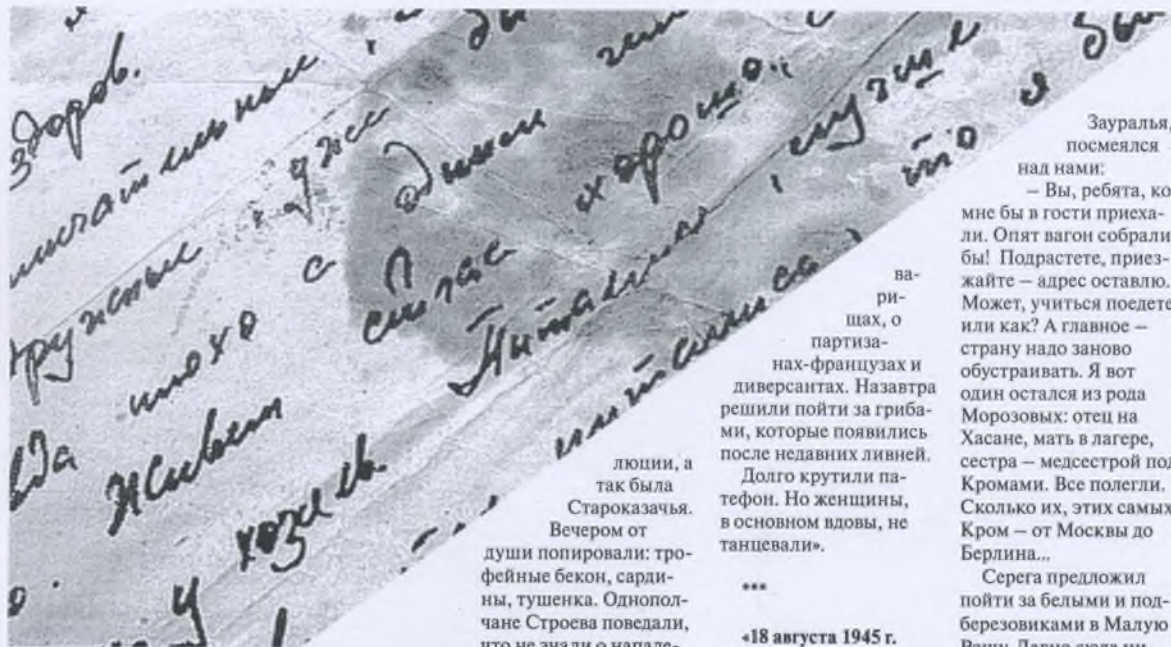 здоров.
дружный
живем
хорошо.
Питание
что я
люции, а
так была
Староказачья.
Вечером от
души попировали: тро-
фейные бекон, сарди-
ны, тушенка. Однопол-
чане Строева поведали,
что не знали о нападе-
ва-
ри-
щах, о
партиза-
нах-французах и
диверсантах. Назавтра
решили пойти за гриба-
ми, которые появились
после недавних ливней.
Долго крутили па-
тефон. Но женщины,
в основном вдовы, не
танцевали».
***
«18 августа 1945 г.
Зауралья,
посмеялся
над нами:
– Вы, ребята, ко
мне бы в гости приеха-
ли. Опят вагон собрали
бы! Подрастете, приез-
жайте – адрес оставлю.
Может, учиться поедете
или как? А главное –
страну надо заново
обустраивать. Я вот
один остался из рода
Морозовых: отец на
Хасане, мать в лагере,
сестра – медсестрой под
Кромами. Все полегли.
Сколько их, этих самых
Кром – от Москвы до
Берлина...
Серега предложил
пойти за белыми и под-
березовиками в Малую